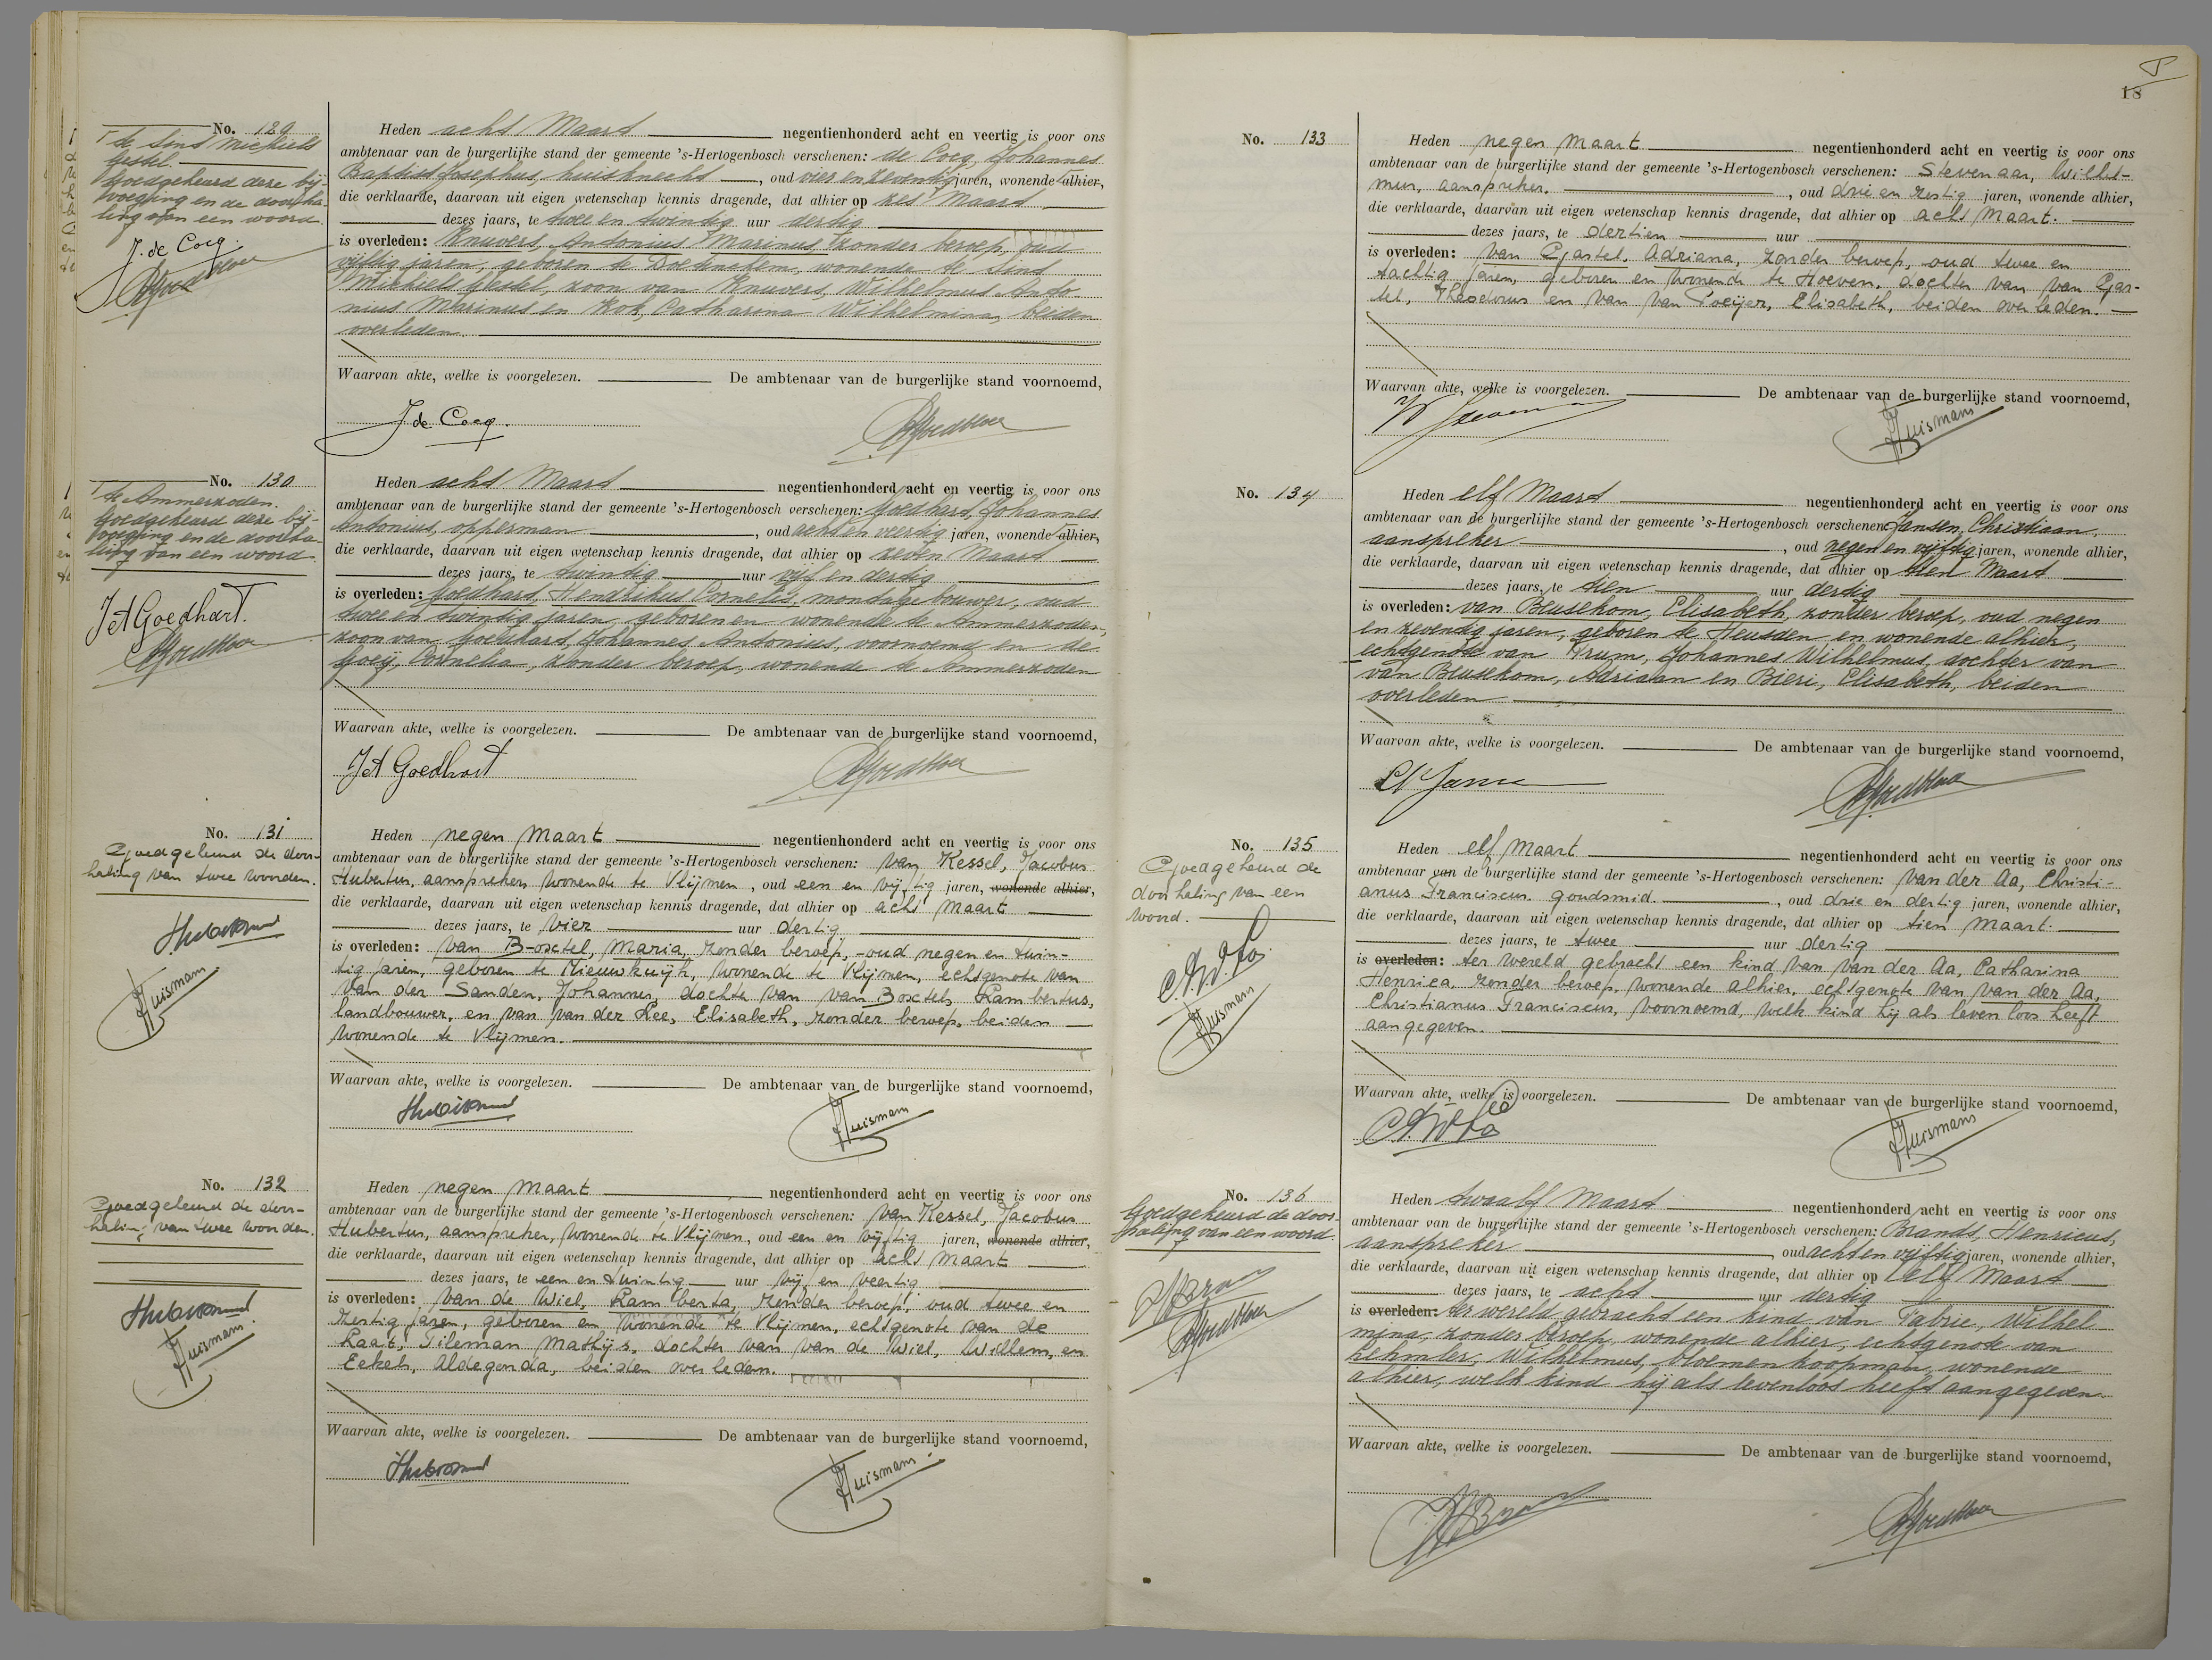 No. 129
te Sint Michiels
Gestel.
Goedgekeurd deze bij-
voeging en de doorha-
ling van een woord.
J. de Cocq.
Heden acht Maart negentienhonderd acht en veertig is voor ons
ambtenaar van de burgerlijke stand der gemeente 's-Hertogenbosch verschenen: de Cocq, Johannes
Baptist Josephus, huisknecht, oud vier en zeventig jaren, wonende alhier,
die verklaarde, daarvan uit eigen wetenschap kennis dragende, dat alhier op zes Maart
dezes jaars, te twee en twintig uur dertig
is overleden: Knuvers, Antonius Marinus, zonder beroep, oud
vijftig jaren, geboren te Doetinchem, wonende te Sint
Michiels Gestel, zoon van Knuvers, Wilhelmus Anto
nius Marinus en Kok, Catharina Wilhelmina, beiden
overleden.
Waarvan akte, welke is voorgelezen. De ambtenaar van de burgerlijke stand voornoemd,
J de Cocq.
No. 130
te Ammerzoden.
Goedgekeurd deze bij-
voeging en de doorha-
ling van een woord.
JA Goedhart.
Heden acht Maart negentienhonderd acht en veertig is voor ons
ambtenaar van de burgerlijke stand der gemeente 's-Hertogenbosch verschenen: Goedhart, Johannes
Antonius, opperman, oud acht en veertig jaren, wonende alhier,
die verklaarde, daarvan uit eigen wetenschap kennis dragende, dat alhier op zeven Maart
dezes jaars, te twintig uur vijf en dertig
is overleden: Goedhart, Hendrikus Cornelis, montagebouwer, oud
twee en twintig jaren, geboren en wonende te Ammerzoden,
zoon van Goedhart, Johannes Antonius, voornoemd en de
Goeij, Cornelia, zonder beroep, wonende te Ammerzoden
Waarvan akte, welke is voorgelezen. De ambtenaar van de burgerlijke stand voornoemd,
JA Goedhart
No. 131
Goedgekeurd de door-
haling van twee woorden.
Huismans
Heden negen Maart negentienhonderd acht en veertig is voor ons
ambtenaar van de burgerlijke stand der gemeente 's-Hertogenbosch verschenen: van Kessel, Jacobus
Hubertus, aanspreker, wonende te Vlijmen, oud een en vijftig jaren, wonende alhier,
die verklaarde, daarvan uit eigen wetenschap kennis dragende, dat alhier op acht Maart
dezes jaars, te vier uur dertig
is overleden: van Boxtel, Maria, zonder beroep, oud negen en twin-
tig jaren, geboren te Nieuwkuijk, wonende te Vlijmen, echtgenote van
van der Sanden, Johannes, dochter van van Boxtel, Lambertus,
landbouwer, en van van der Lee, Elisabeth, zonder beroep, beiden
wonende te Vlijmen.
Waarvan akte, welke is voorgelezen. De ambtenaar van de burgerlijke stand voornoemd,
Huismans
No. 132
Goedgekeurd de door-
haling van twee woorden.
Huismans
Heden negen Maart negentienhonderd acht en veertig is voor ons
ambtenaar van de burgerlijke stand der gemeente 's-Hertogenbosch verschenen: van Kessel, Jacobus
Hubertus, aanspreker, wonende te Vlijmen, oud een en vijftig jaren, wonende alhier,
die verklaarde, daarvan uit eigen wetenschap kennis dragende, dat alhier op acht Maart
dezes jaars, te een en twintig uur vijf en veertig
is overleden: van de Wiel, Lamberta, zonder beroep, oud twee en
zestig jaren, geboren en wonende te Vlijmen, echtgenote van de
Laat, Tileman Mathijs, dochter van van de Wiel, Willem, en
Eekels, Aldegonda, beiden overleden.
Waarvan akte, welke is voorgelezen. De ambtenaar van de burgerlijke stand voornoemd,
Huismans
18
No. 133
Heden negen Maart negentienhonderd acht en veertig is voor ons
ambtenaar van de burgerlijke stand der gemeente 's-Hertogenbosch verschenen: Stevenaar, Wilhel-
mus, aanspreker, oud drie en zestig jaren, wonende alhier,
die verklaarde, daarvan uit eigen wetenschap kennis dragende, dat alhier op acht Maart.
dezes jaars, te dertien uur
is overleden: van Gastel, Adriana, zonder beroep, oud twee en
tachtig jaren, geboren en wonende te Hoeven, dochter van van Gas-
tel, Theodorus en van van Poeijer, Elisabeth, beiden overleden.
Waarvan akte, welke is voorgelezen. De ambtenaar van de burgerlijke stand voornoemd,
Huismans
No. 134
Heden elf Maart negentienhonderd acht en veertig is voor ons
ambtenaar van de burgerlijke stand der gemeente 's-Hertogenbosch verschenen: Jansen, Christiaan,
aanspreker, oud negen en vijftig jaren, wonende alhier,
die verklaarde, daarvan uit eigen wetenschap kennis dragende, dat alhier op tien Maart
dezes jaars, te tien uur dertig
is overleden: van Beusekom, Elisabeth, zonder beroep, oud negen
en zeventig jaren, geboren te Heusden en wonende alhier,
echtgenote van Trum, Johannes Wilhelmus, dochter van
van Beusekom, Adriaan en Bieri, Elisabeth, beiden
overleden
Waarvan akte, welke is voorgelezen. De ambtenaar van de burgerlijke stand voornoemd,
No. 135
Goedgekeurd de
doorhaling van een
woord.
Huismans
Heden elf Maart negentienhonderd acht en veertig is voor ons
ambtenaar van de burgerlijke stand der gemeente 's-Hertogenbosch verschenen: van der Aa, Christi-
anus Franciscus, goudsmid, oud drie en dertig jaren, wonende alhier,
die verklaarde, daarvan uit eigen wetenschap kennis dragende, dat alhier op tien Maart.
dezes jaars, te twee uur dertig
is overleden: ter wereld gebracht een kind van van der Aa, Catharina
Henrica, zonder beroep, wonende alhier, echtgenote van van der Aa,
Christianus Franciscus, voornoemd, welk kind hij als levenloos heeft
aangegeven.
Waarvan akte, welke is voorgelezen. De ambtenaar van de burgerlijke stand voornoemd,
Huismans
No. 136
Goedgekeurd de door-
haling van een woord.
Heden twaalf Maart negentienhonderd acht en veertig is voor ons
ambtenaar van de burgerlijke stand der gemeente 's-Hertogenbosch verschenen: Brands, Henricus,
aanspreker, oud acht en vijftig jaren, wonende alhier,
die verklaarde, daarvan uit eigen wetenschap kennis dragende, dat alhier op elf Maart
dezes jaars, te acht uur dertig
is overleden: ter wereld gebracht een kind van Fabrie, Wilhel-
mina, zonder beroep, wonende alhier, echtgenote van
Wilhelmus, bloemenkoopman, wonende
alhier, welk kind hij als levenloos heeft aangegeven.
Waarvan akte, welke is voorgelezen. De ambtenaar van de burgerlijke stand voornoemd,